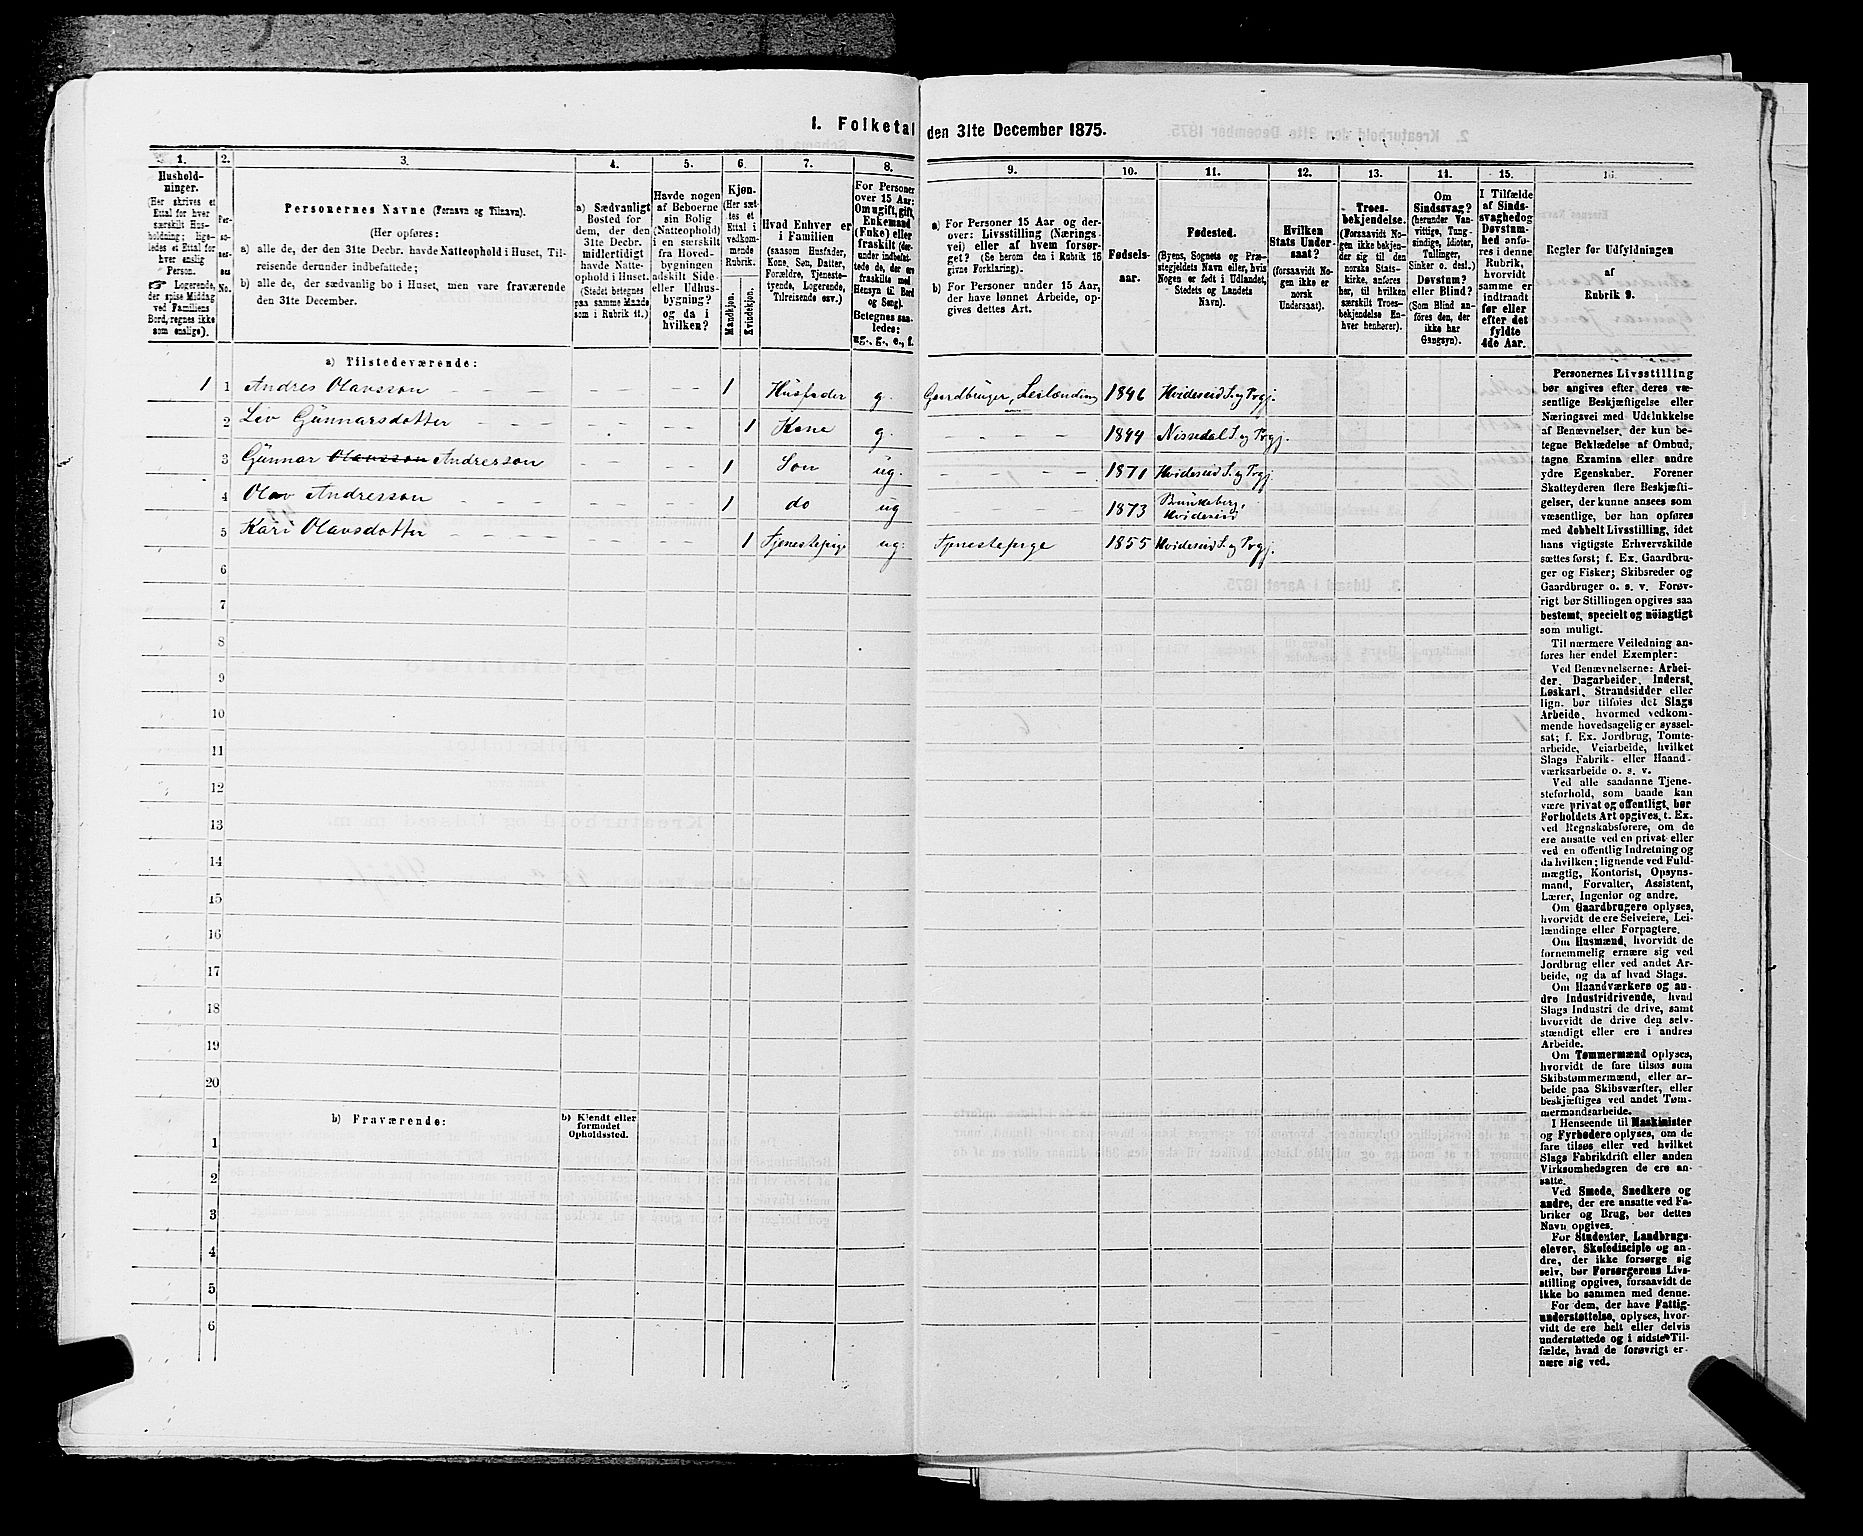 1. Folketal den 31te December 1875.
1. 2. 3. 4. 5. 6. 7. 8. 9. 10. 11. 12. 13. 14. 15. 16.
Hushold-
ninger.
(Her skrives et
Ettal for hver
særskilt Hus-
holdning; lige-
ledes et Ettal for
hver enslig
Person.
☞ Logerende,
der spise Middag
ved Familiens
Bord, regnes ikke
som enslige).
Per-
so-
ner-
nes
No.
Personernes Navne (Fornavn og Tilnavn).
(Her opføres:
a) alle de, der den 31te Decbr. havde Natteophold i Huset, Til-
reisende derunder indbefattede;
b) alle de, der sædvanlig bo i Huset, men vare fraværende
den 31te December.
a) Sædvanligt
Bosted for
dem, der den
31te Decbr.
midlertidigt
havde Natte-
ophold i Huset.
(Stedet betegnes
paa samme Maade,
som i Rubrik 11.)
Havde nogen
af Beboerne
sin Bolig
(Natteophold)
i en særskilt
fra Hoved-
bygningen
adskilt Side-
eller Udhus-
bygning?
og da i
hvilken?
Kjøn.
(Her sæt-
tes et
Ettal i
vedkom-
mende
Rubrik.
Mandkjøn.
Kvindekjøn.
Hvad Enhver er
i Familien
(saasom Husfader,
Kone, Søn, Datter,
Forældre, Tjeneste-
tyende, Logerende,
Tilreisende osv.)
For Personer
over 15 Aar:
Om ugift, gift,
Enkemand
(Enke) eller
fraskilt (der-
under indbefat-
tede de, der ere
fraskilte med
Hensyn til Bord
og Seng).
Betegnes saa-
ledes:
ug., g., e., f.
a) For Personer 15 Aar og der-
over: Livsstilling (Nærings-
vei) eller af hvem forsør-
get? (Se herom den i Rubrik 16
givne Forklaring).
b) For Personer under 15 Aar,
der have lønnet Arbeide, op-
gives dettes Art.
Fødsels-
aar.
Fødested.
(Byens, Sognets og Præ-
stegjeldets Navn eller, hvis
Nogen er født i Udlandet,
Stedets og Landets
Navn).
Hvilken
Stats Under-
saat?
(forsaavidt No-
gen ikke er
norsk
Undersaat).
Troes-
bekjendelse.
(Forsaavidt No-
gen ikke bekjen-
der sig til den
norske Stats-
kirke, anføres
her, til hvilken
særskilt Troes-
bekjendelse En-
hver henhører).
Om
Sindssvag?
(herunder Van-
vittige, Tung-
sindige, Idioter,
Tullinger,
Sinker o. desl.)
Døvstum?
eller Blind?
(Som Blind an-
føres den, der
ikke har
Gangsyn).
I Tilfælde
af Sinds-
svaghed og
Døvstum-
hed anfø-
res i denne
Rubrik,
hvorvidt
samme er
indtraadt
før eller
efter det
fyldte
4de Aar.
Regler for Udfyldningen
af
Rubrik 9.
a) Tilstedeværende:
1 1 Andres Olavsson 1 Husfader g. Gaardbruger, Leilænding 1846 Hvideseid S. og Prgj.
2 Liv Gunnarsdotter 1 Kone g. 1844 Nissedal S. og Prgj.
3 Gunnar Olavsson Andresson 1 Søn ug. 1871 Hvideseid S. og Prgj.
4 Olav Andresson 1 do ug 1873 Brunkeberg, Hvideseid
5 Kari Olavsdotter 1 Tjenestepige ug. Tjenestepige 1855 Hvideseid S. og Prgj.
6
7
8
9
10
11
12
13
14
15
16
17
18
19
20
b) Fraværende:
b) Kjendt eller
formodet
Opholdssted.
1
2
3
4
5
6
Personernes Livsstilling
bør angives efter deres væ-
sentlige Beskjæftigelse eller
Næringsvei med Udelukkelse
af Benævnelser, der kun be-
tegne Beklædelse af Ombud,
tagne Examina eller andre
ydre Egenskaber. Forener
Skatteyderen flere Beskjæfti-
gelser, der kunne ansees som
væsentlige, bør han opføres
med dobbelt Livsstilling, idet
hans vigtigste Erhvervskilde
sættes først; f. Ex. Gaardbru-
ger og Fisker; Skibsreder og
Gaardbruger o. s. v. Forøv-
rigt bør Stillingen opgives saa
bestemt, specielt og nöiagtigt
som muligt.
Til nærmere Veiledning an-
føres her endel Exempler:
Ved Benævnelserne: Arbei-
der, Dagarbeider, Inderst,
Løskarl, Strandsidder eller
lign. bør tilføies det Slags
Arbeide, hvormed vedkom-
mende hovedsagelig er syssel-
sat; f. Ex. Jordbrug, Tomte-
arbeide, Veiarbeide, hvilket
Slags Fabrik- eller Haand-
værksarbeide o. s. v.
Ved alle saadanne Tjene-
steforhold, som baade kan
være privat og offentligt, bør
Forholdets Art opgives, t. Ex.
ved Regnskabsførere, om de
ere ansatte ved en privat eller
ved en offentlig Indretning og
da hvilken; lignende ved Fuld-
mægtig, Kontorist, Opsyns-
mand, Forvalter, Assistent,
Lærer, Ingeniør og andre.
Om Gaardbrugere oplyses,
hvorvidt de ere Selveiere, Lei-
lændinge eller Forpagtere.
Om Husmænd, hvorvidt de
fornemmelig ernære sig ved
Jordbrug eller ved andet Ar-
beide, og da af hvad Slags.
Om Haandværkere og an-
dre Industridrivende, hvad
Slags Industri de drive, samt
hvorvidt de drive den selv-
stændigt eller ere i andres
Arbeide.
Om Tømmermænd oplyses,
hvorvidt de fare tilsøs som
Skibstømmermænd, eller ar-
beide paa Skibsværfter, eller
beskjæftiges ved andet Tøm-
mermandsarbeide.
I Henseende til Maskinister
og Fyrbødere oplyses, om de
fare tilsøs eller ved hvilket
Slags Fabrikdrift eller anden
Virksomhedsgren de ere an-
satte.
Ved Smede, Snedkere og
andre, der ere ansatte ved Fa-
briker og Brug, bør dettes
Navn opgives.
For Studenter, Landbrugs-
elever, Skoledisciple og an-
dre, der ikke forsørge sig
selv, bør Forsørgerens Livs-
stilling opgives, forsaavidt de
ikke bo sammen med denne.
For dem, der have Fattig-
understøttelse, oplyses, hvor-
vidt de ere helt eller delvis
understøttede og i sidste Til-
fælde, hvad de forøvrigt er-
nære sig ved.